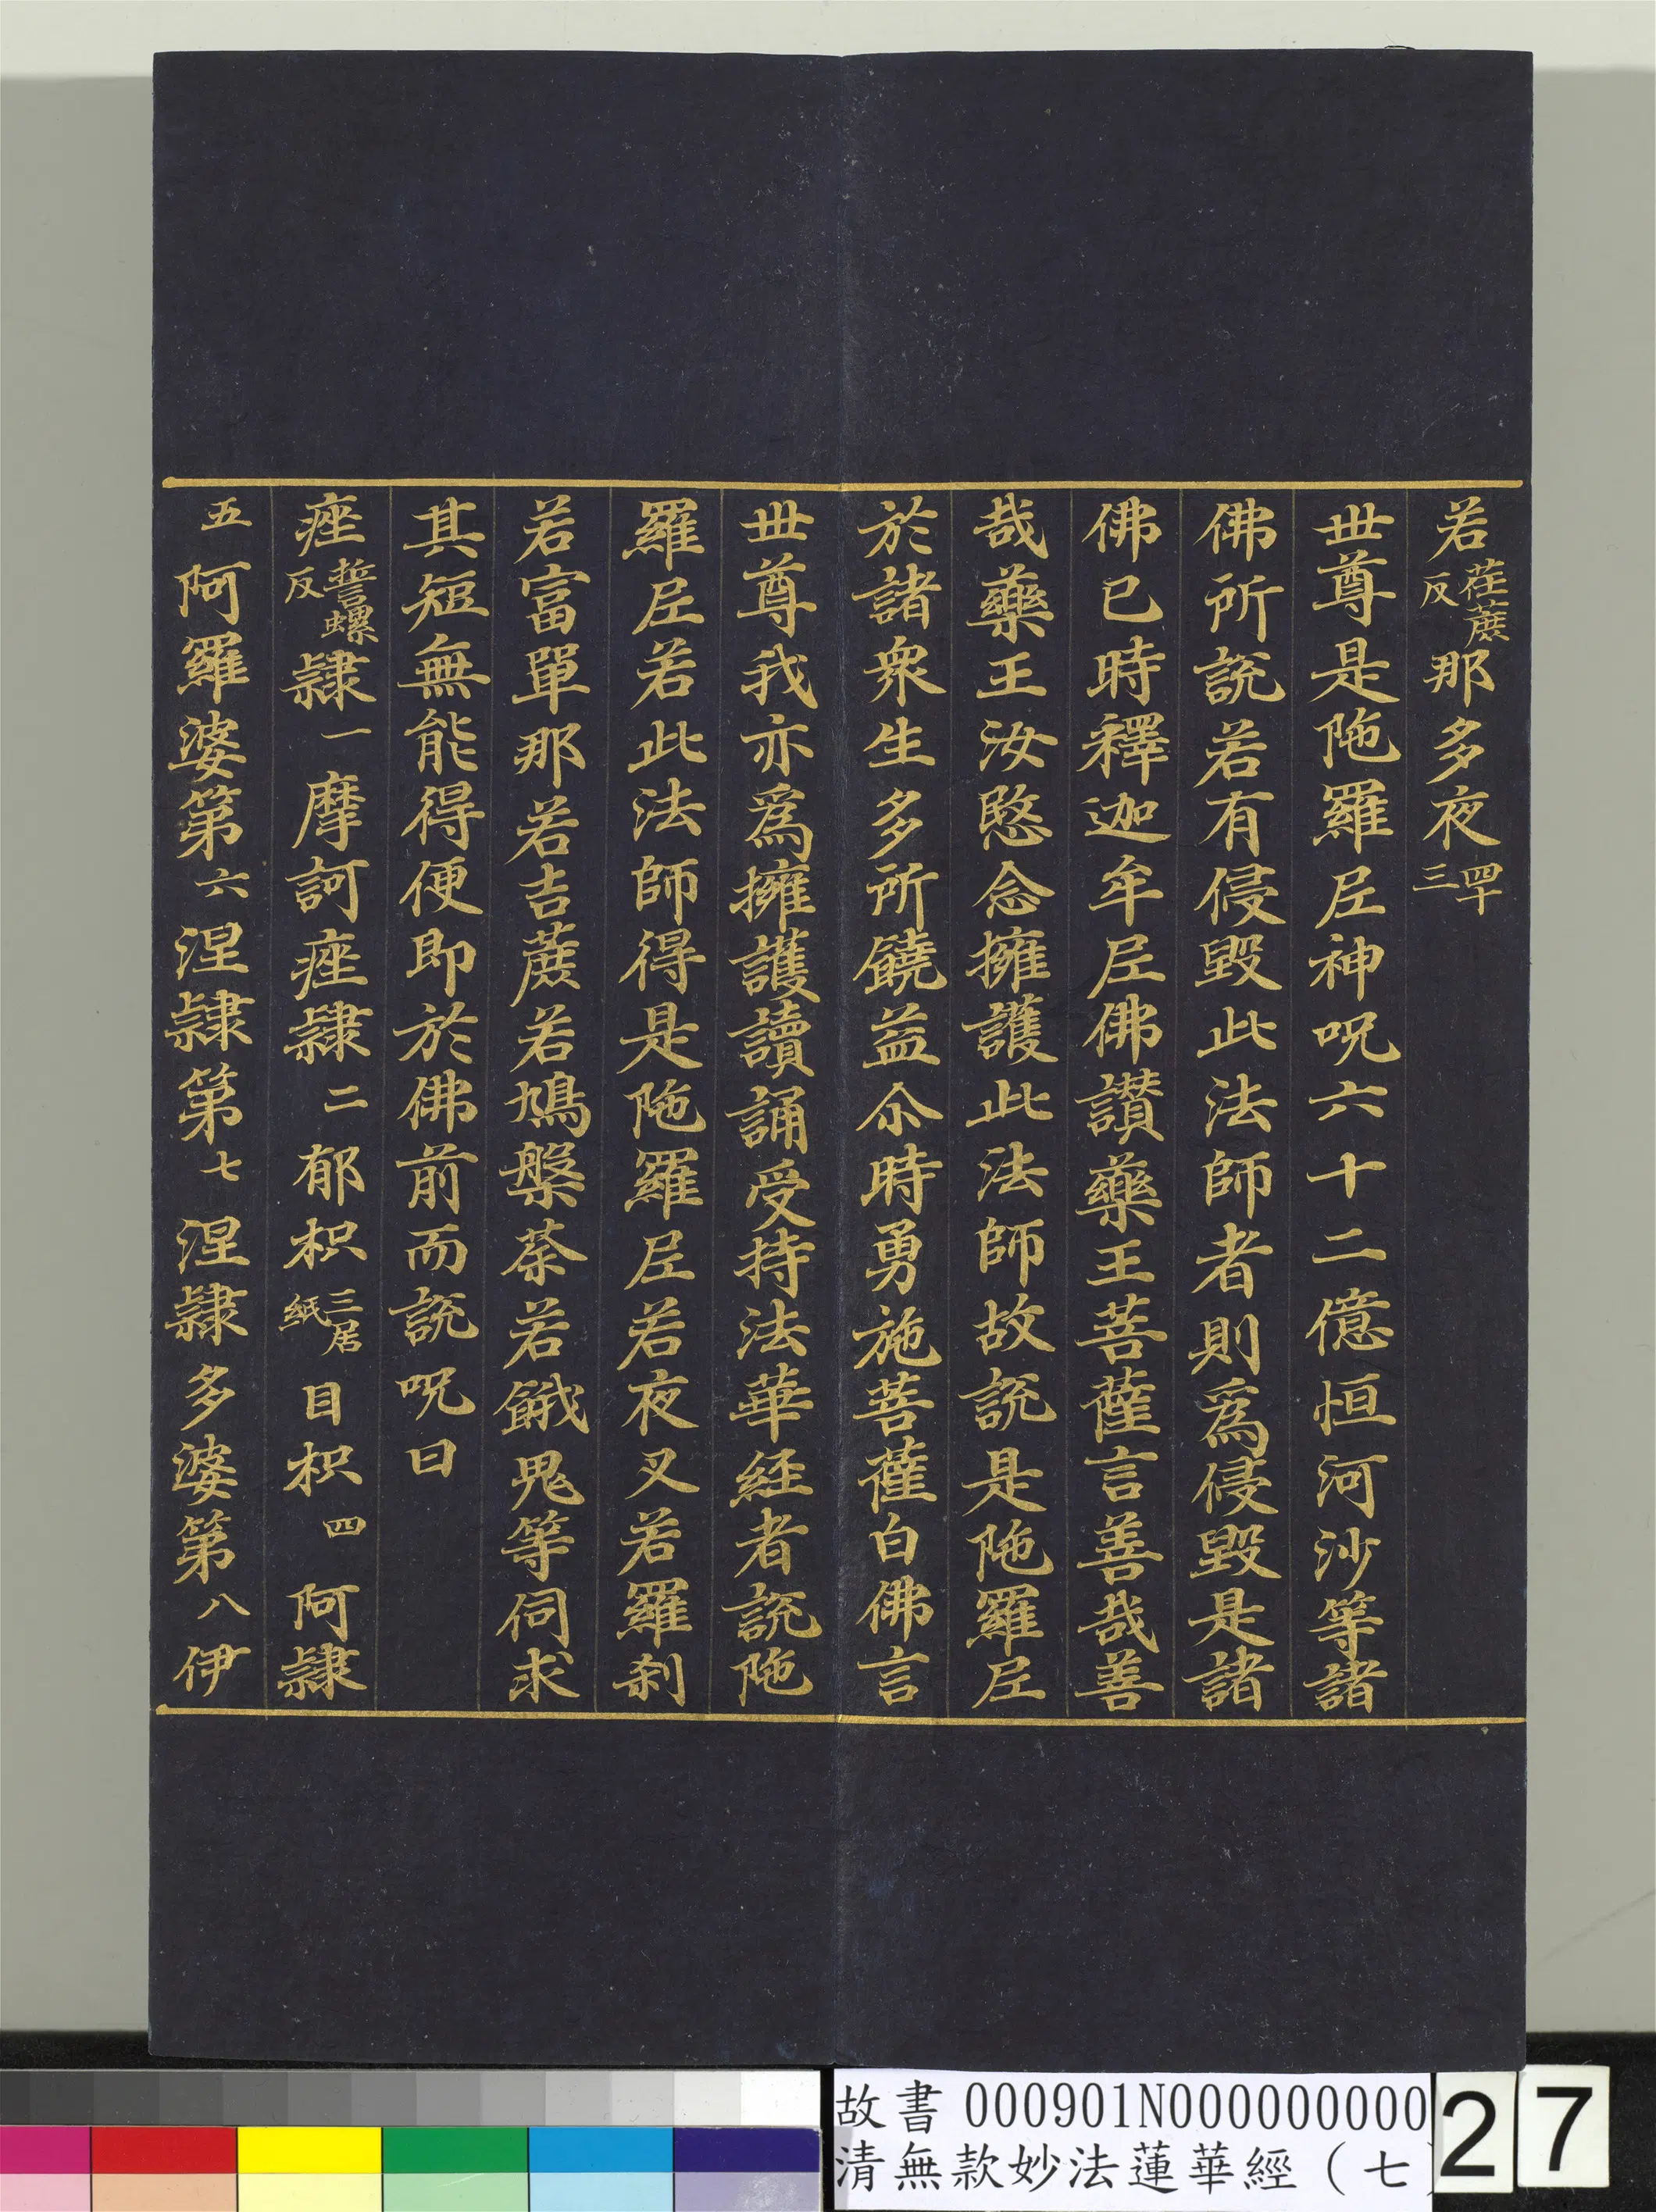 若荏蔗反那多夜四十三
世尊是陁羅尼神呪六十二億恒河沙等諸
佛所說若有侵毀此法師者則爲侵毀是諸
佛已時釋迦牟尼佛讃藥王菩薩言善哉善
哉藥王汝愍念擁護此法師故說是陁羅尼
於諸衆生多所饒益尒時勇施菩薩白佛言
世尊我亦爲擁護讀誦受持法華経者說陁
羅尼若此法師得是陁羅尼若夜叉若羅刹
若富單那若吉蔗若鳩槃荼若餓鬼等伺求
其短無能得便即於佛前而說呪曰
痤誓螺反隸一摩訶痤隸二郁枳三居紙目枳四阿隸
五阿羅婆第六涅隸第七涅隸多婆第八伊
故書 000901N000000000
清無款妙法蓮華經（七
27